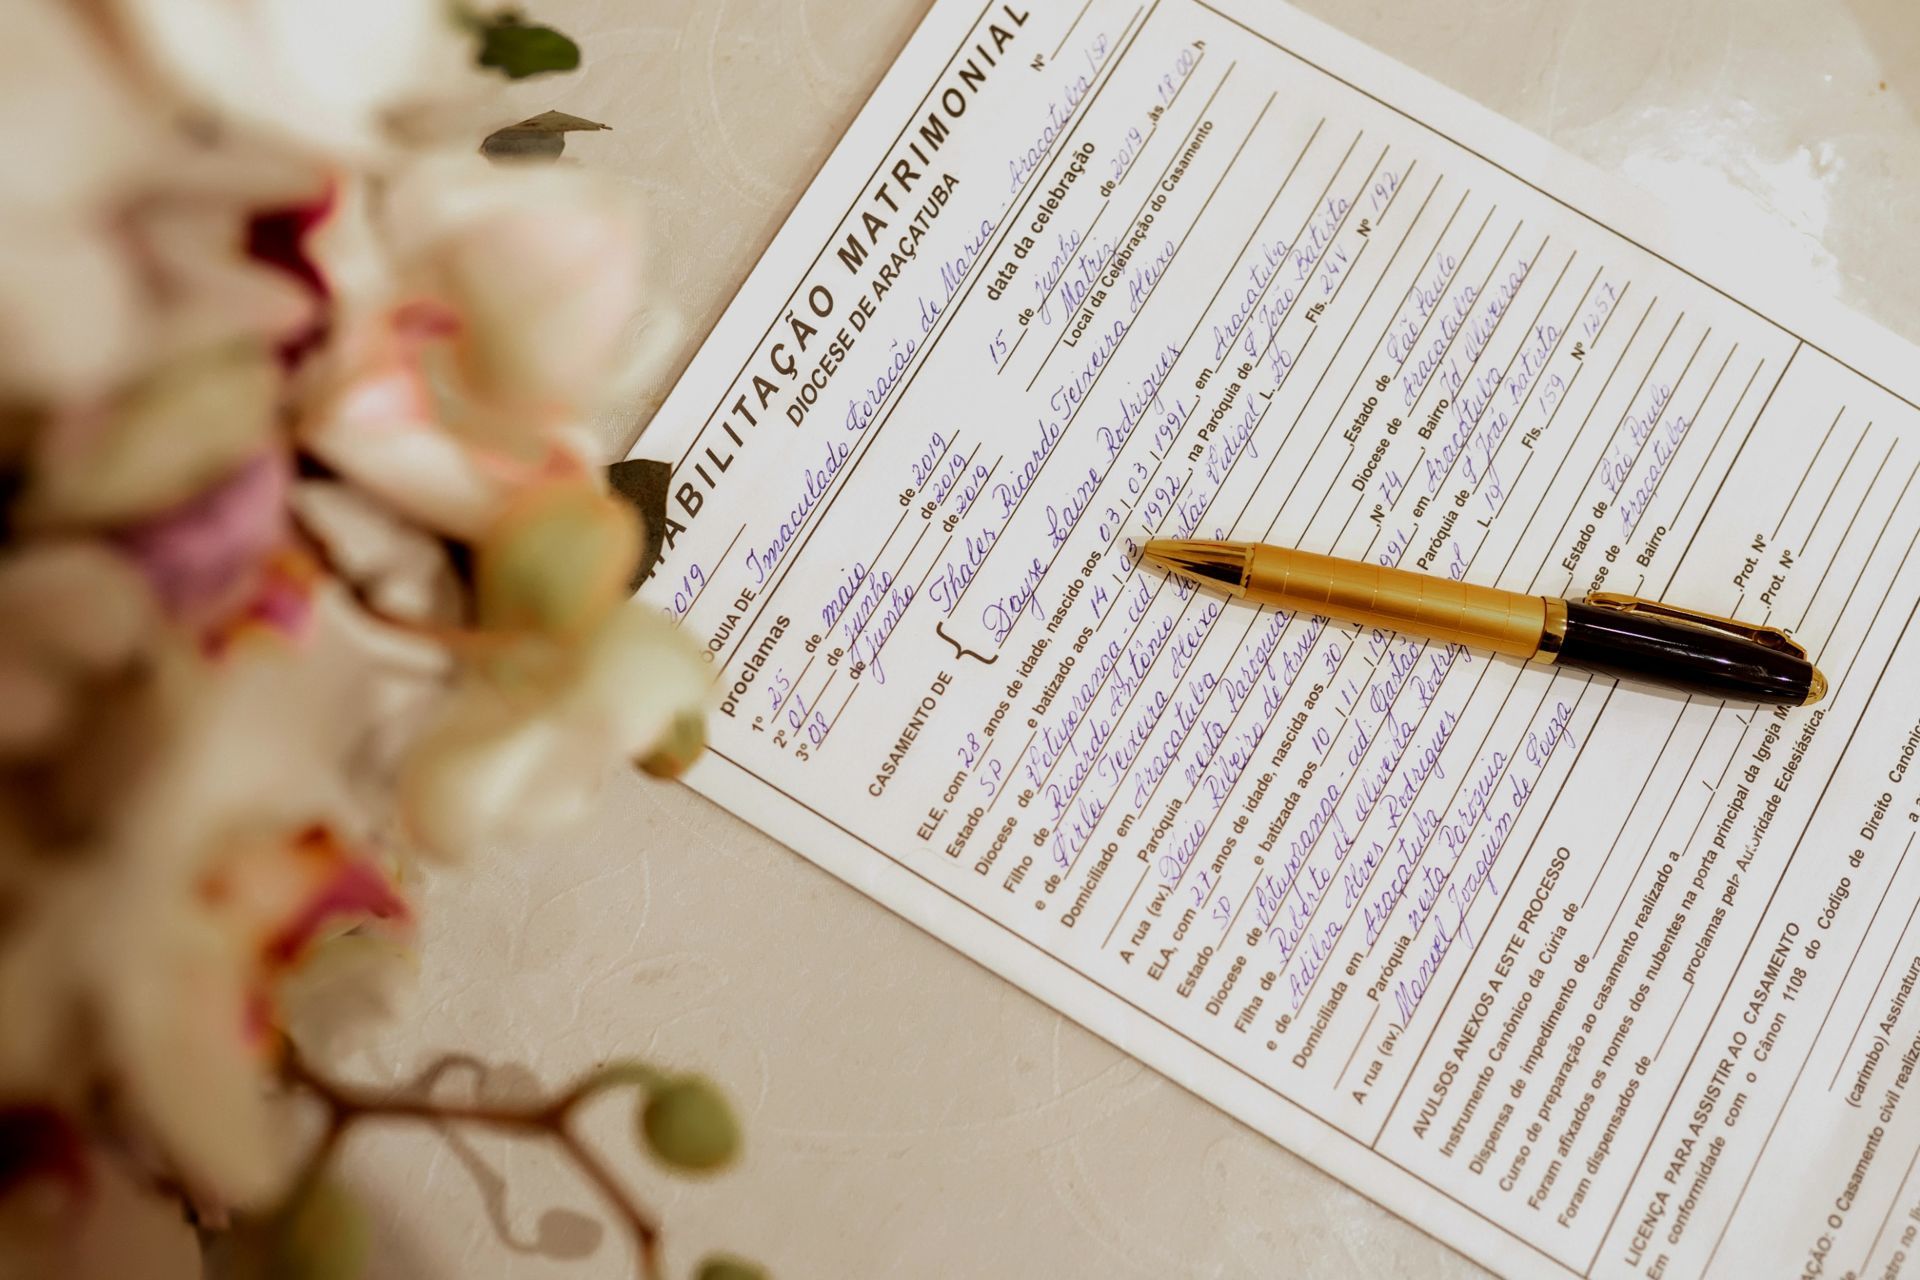 HABILITAÇÃO MATRIMONIAL
DIOCESE DE ARAÇATUBA
Nº
2019
PARÓQUIA DE Imaculado Coração de Maria - Araçatuba/SP
proclamas
1º 25 de maio de 2019
2º 01 de junho de 2019
3º 08 de junho de 2019
data da celebração
15 de junho de 2019, às 18:00 h
Matriz
Local da Celebração do Casamento
CASAMENTO DE { Thales Ricardo Teixeira Aleixo
Dayse Laine Rodrigues
ELE, com 28 anos de idade, nascido aos 03 / 03 / 1991, em Araçatuba
Estado SP e batizado aos 14 / 03 / 1992, na Paróquia de S. João Batista
Diocese de Votuporanga - cid. Gastão Vidigal L. 20 Fls. 24V Nº 192
Filho de Ricardo Antônio
e de Sirlei Teixeira Aleixo
Domiciliado em Araçatuba, Estado de São Paulo
Paróquia nesta Paróquia Diocese de Araçatuba
A rua (av.) Décio Ribeiro de Nº 74, Bairro Jd Oliveiras
ELA, com 27 anos de idade, nascida aos 30 / 11 / 1991, em Araçatuba
Estado SP e batizada aos 10 Paróquia de S. João Batista
Diocese de Votuporanga - cid. Gastão L. 19 Fls. 159 Nº 1257
Filha de Roberto de Oliveira Rodrigues
e de Adilva Alves Rodrigues
Domiciliada em Araçatuba Estado de São Paulo
Paróquia nesta Paróquia Diocese de Araçatuba
A rua (av.) Manoel Joaquim de Souza, Bairro
AVULSOS ANEXOS A ESTE PROCESSO
Instrumento Canônico da Cúria de Prot. Nº
Dispensa de impedimento de Prot. Nº
Curso de preparação ao casamento realizado a
Foram afixados os nomes dos nubentes na porta principal da Igreja
Foram dispensados de proclamas pela Autoridade Eclesiástica.
LICENÇA PARA ASSISTIR AO CASAMENTO
Em conformidade com o Cânon 1108 do Código de Direito Canônico
a
(carimbo) Assinatura
O Casamento civil